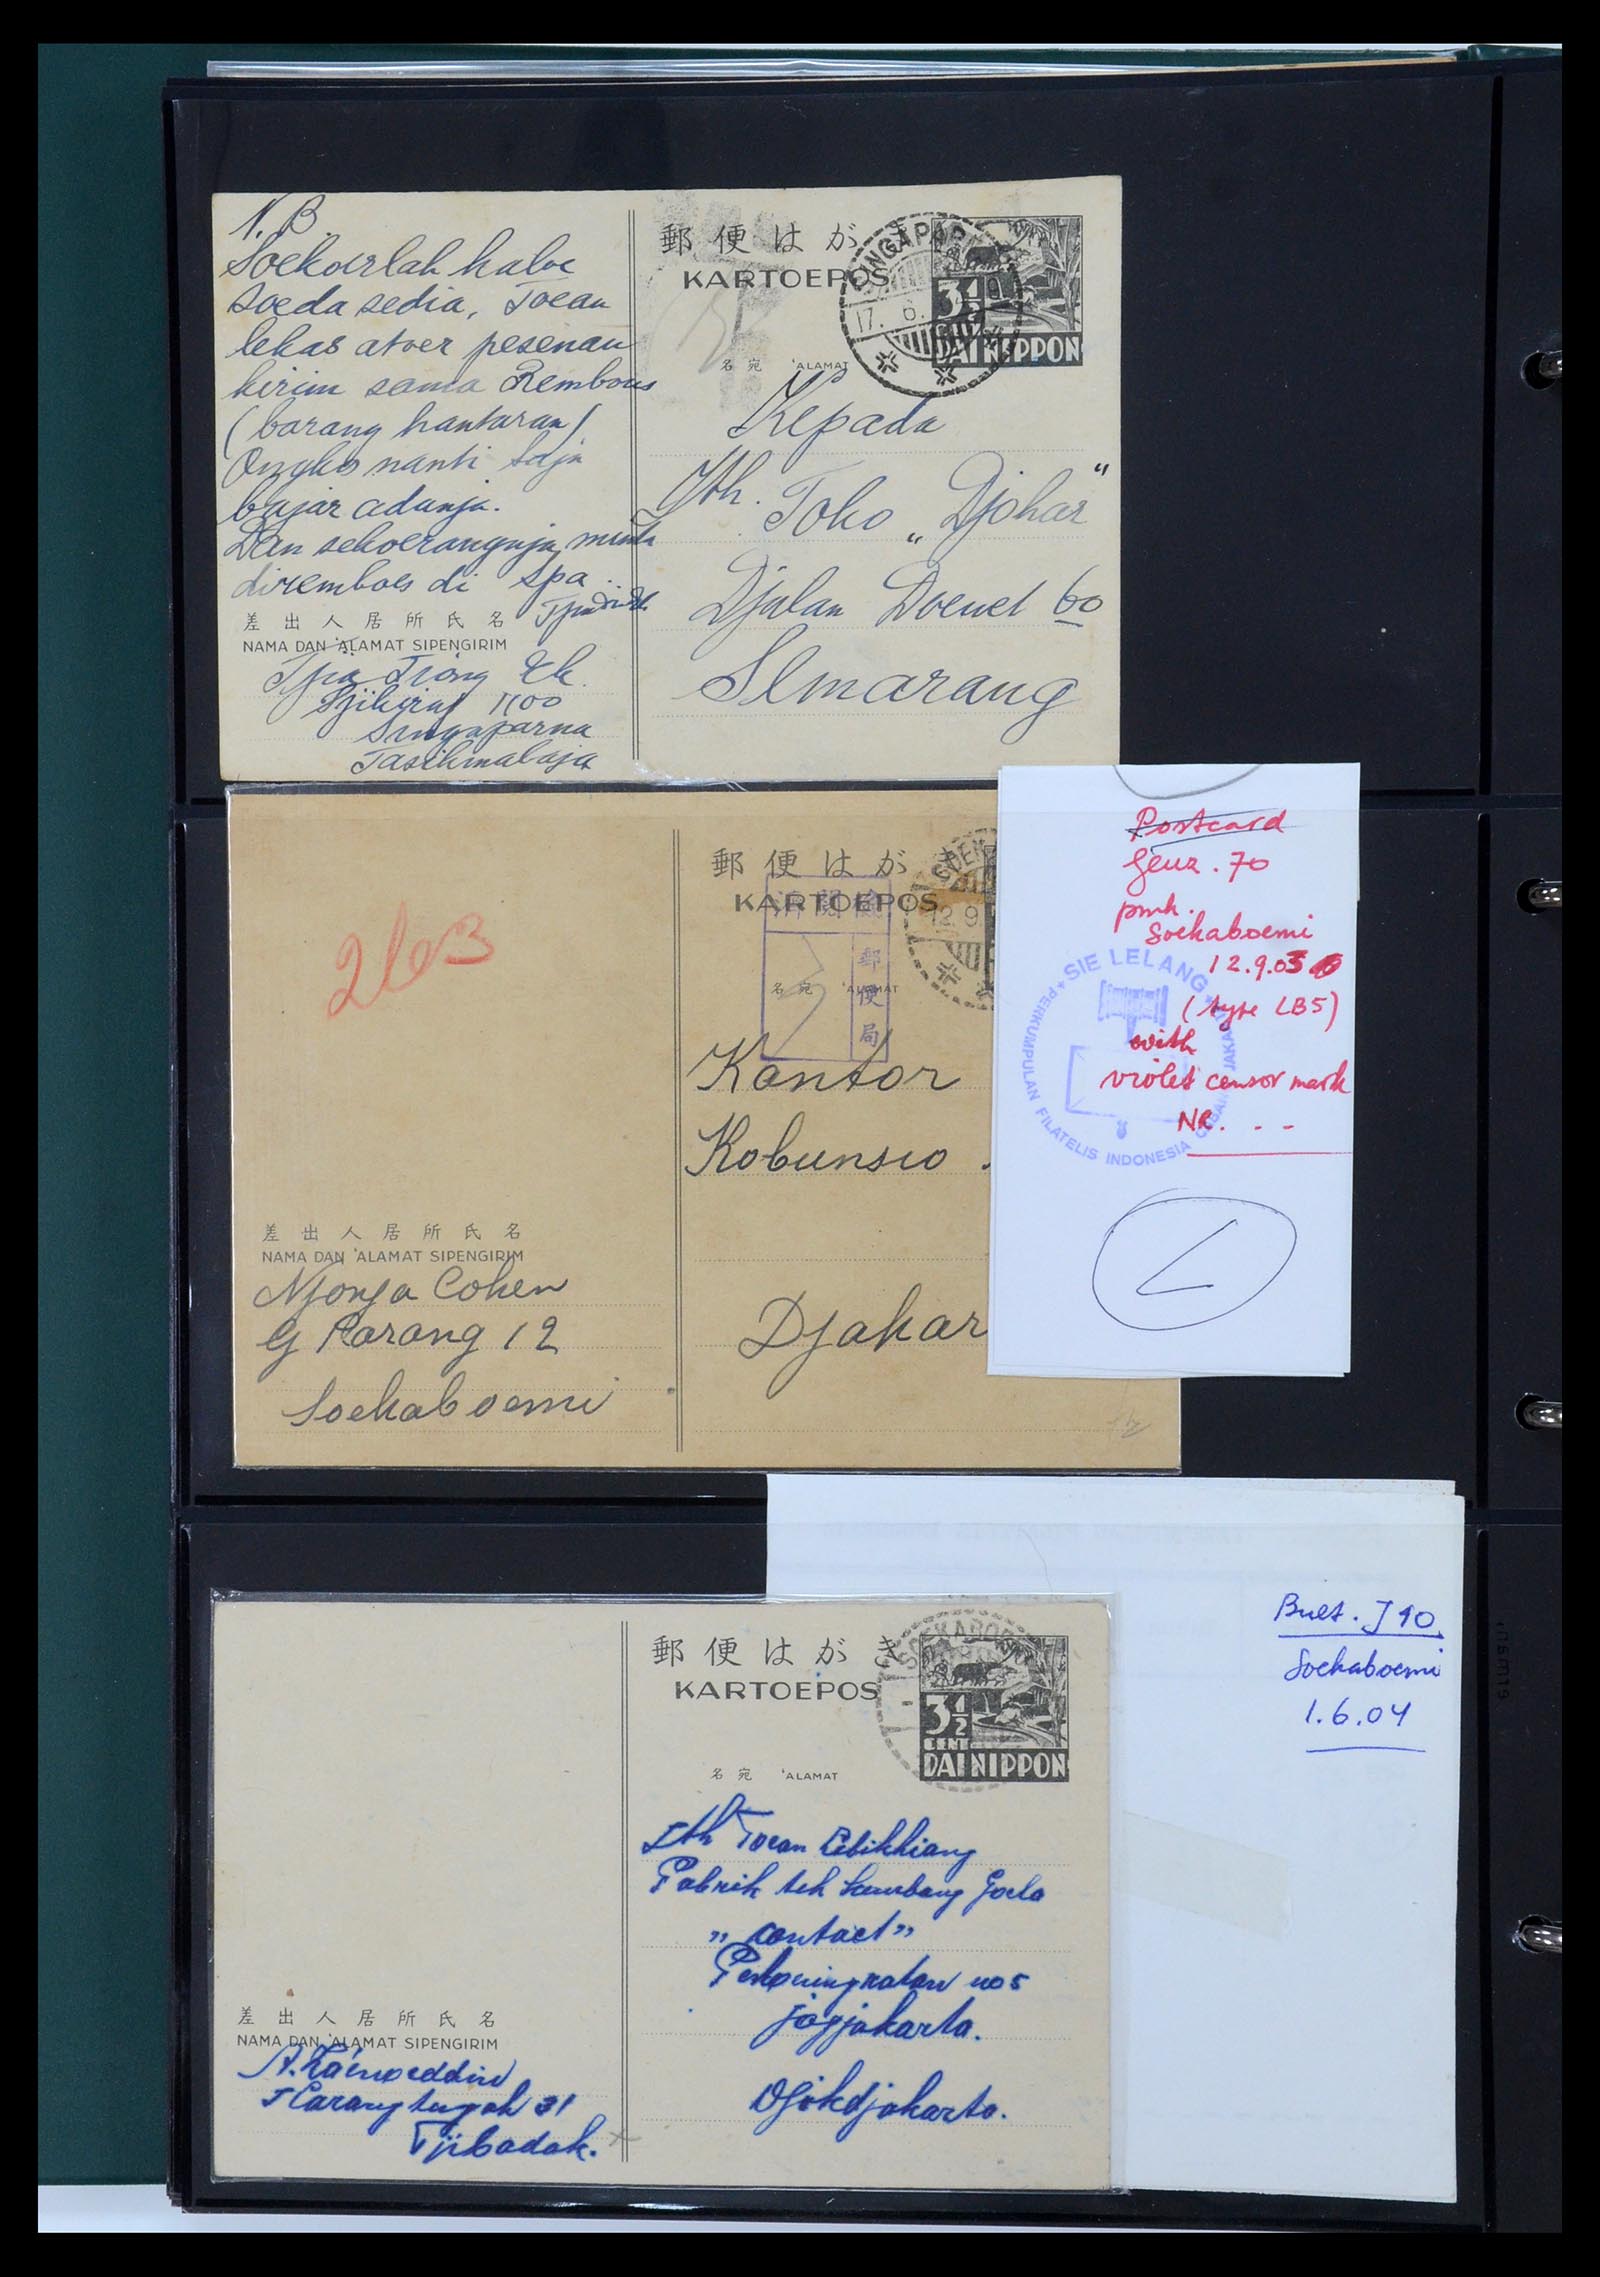 N.B.
Soekoerlah kaloe
soeda sedia, Toean
lekas atoer pesenan
kirim sama Rembours
(barang hantaran)
Ongkos nanti saja
bajar adanja.
Dan sekoerangnja, minta
diremboes di Spa..
差出人居所氏名
NAMA DAN 'ALAMAT SIPENGIRIM
Tjia Tiong Ek.
1100
Singaparna
Tasikmalaja
郵便はがき
KARTOEPOS
SINGAPAR
17. 6. 9
3½
DAI NIPPON
名宛 'ALAMAT
Kepada
Jth. Toko „Djohar"
Djalan Doewet 60
Semarang
郵便はがき
KARTOEPOS
12 9
検閲済
郵便局
名宛 'ALAMAT
2603
Kantor
Kobunsio
Djakar
差出人居所氏名
NAMA DAN 'ALAMAT SIPENGIRIM
Njonja Cohen
Gg Parang 12
Soekaboemi
Postcard
Geuz. 70
pmk.
Soekaboemi
12.9.03
(type LB5)
with
violet censor mark
NR. . - -
SIE LELANG
PERKUMPULAN FILATELIS INDONESIA CABANG JAKARTA
郵便はがき
KARTOEPOS
SOEKABOE
3½
CENT
DAI NIPPON
名宛 'ALAMAT
Jth Toean
Pabrik teh kembang Goela
" contact "
no 5
jogjakarta.
Djokdjakarta.
差出人居所氏名
NAMA DAN 'ALAMAT SIPENGIRIM
Karangtengah 31
Tjibadak.
Bult. J 10.
Soekaboemi
1.6.04